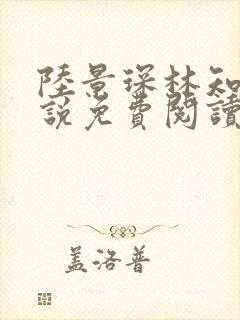 陸景琛林知
說免費閱讀
蓋洛普